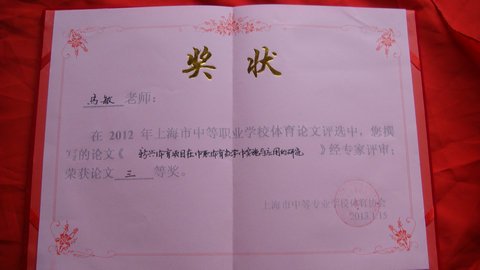 奖状
马敏 老师:
在 2012 年上海市中等职业学校体育论文评选中, 您撰
写的论文《新兴体育项目在中职体育教学中实施与应用的研究》经专家评审:
荣获论文 三 等奖。
上海市中等专业学校体育协会
2013.1.15